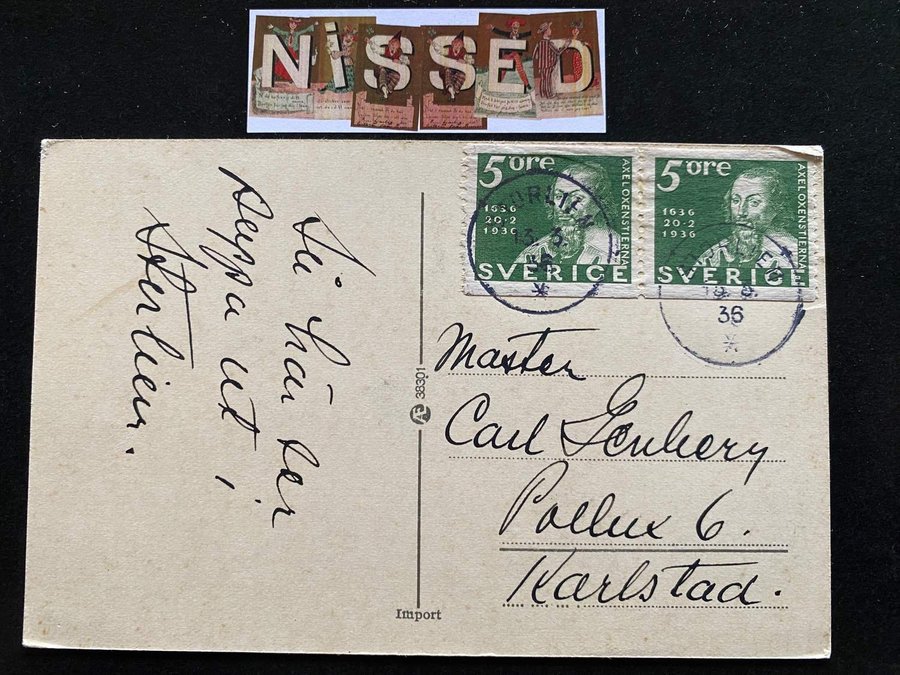 NiSSED
5 öre
1636
20·2
1936
AXEL OXENSTIERNA
SVERIGE
5 öre
1636
20·2
1936
AXEL OXENSTIERNA
SVERIGE
13. 3.
36
36
Så här ser
ut i
38301
Import
Master
Carl Genberg
Pollux 6.
Karlstad.